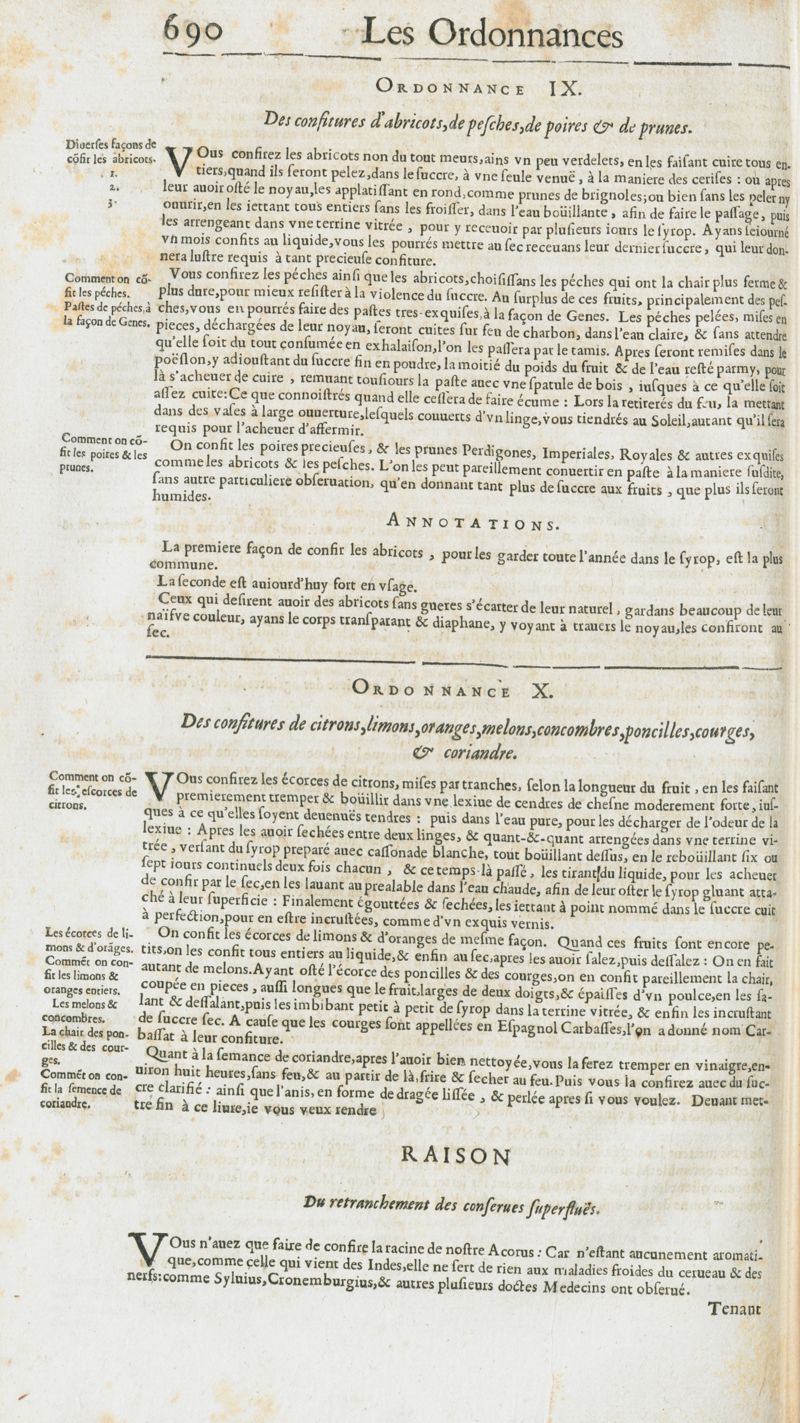 690 Les Ordonnances
ORDONNANCE IX.
Des confitures d'abricots,de peſches,de poires & de prunes.
Diuerſes façons de
cõfir les abricots.
1.
2.
3.
VOus confirez les abricots non du tout meurs,ains vn peu verdelets, en les faiſant cuire tous en-
tiers,quand ils ſeront pelez,dans le ſuccre, à vne ſeule venuë, à la maniere des ceriſes : où apres
leur auoir oſté le noyau,les applatiſſant en rond,comme prunes de brignoles;ou bien ſans les peler ny
ouurir,en les iettant tous entiers ſans les froiſſer, dans l'eau boüillante, afin de faire le paſſage, puis
les arrengeant dans vne terrine vitrée , pour y receuoir par pluſieurs iours le ſyrop. Ayans ſeiourné
vn mois confits au liquide,vous les pourrés mettre au ſec receuans leur dernier ſuccre, qui leur don-
nera luſtre requis à tant precieuſe confiture.
Comment on cõ-
fit les péches.
Paſtes de péches,à
la façon de Genes.
Vous confirez les péches ainſi que les abricots,choiſiſſans les péches qui ont la chair plus ferme &
plus dure,pour mieux reſiſter à la violence du ſuccre. Au ſurplus de ces fruits, principalement des peſ-
ches,vous en pourrés faire des paſtes tres-exquiſes,à la façon de Genes. Les péches pelées, miſes en
pieces, déchargées de leur noyau, ſeront cuites ſur feu de charbon, dans l'eau claire, & ſans attendre
qu'elle ſoit du tout conſumée en exhalaiſon,l'on les paſſera par le tamis. Apres ſeront remiſes dans le
poëſlon,y adiouſtant du ſuccre fin en poudre, la moitié du poids du fruit & de l'eau reſté parmy, pour
là s'acheuer de cuire , remuant touſiours la paſte auec vne ſpatule de bois , iuſques à ce qu'elle ſoit
aſſez cuite:Ce que connoiſtrés quand elle ceſſera de faire écume : Lors la retirerés du feu, la mettant
dans des vaſes à large ouuerture,leſquels couuerts d'vn linge,vous tiendrés au Soleil,autant qu'il ſera
requis pour l'acheuer d'affermir.
Comment on cõ-
fit les poires & les
prunes.
On confit les poires precieuſes, & les prunes Perdigones, Imperiales, Royales & autres exquiſes
comme les abricots & les peſches. L'on les peut pareillement conuertir en paſte à la maniere ſuſdite,
ſans autre particuliere obſeruation, qu'en donnant tant plus de ſuccre aux fruits , que plus ils ſeront
humides.
ANNOTATIONS.
La premiere façon de confir les abricots , pour les garder toute l'année dans le ſyrop, eſt la plus
commune.
La ſeconde eſt auiourd'huy fort en vſage.
Ceux qui deſirent auoir des abricots ſans gueres s'écarter de leur naturel, gardans beaucoup de leur
naïfve couleur, ayans le corps tranſparant & diaphane, y voyant à trauers le noyau,les confiront au
ſec.
ORDONNANCE X.
Des confitures de citrons,limons,oranges,melons,concombres,poncilles,courges,
& coriandre.
Comment on cõ-
fit les eſcorces de
citrons.
VOus confirez les écorces de citrons, miſes par tranches, ſelon la longueur du fruit , en les faiſant
premierement tremper & boüillir dans vne lexiue de cendres de cheſne moderement forte, iuſ-
ques à ce qu'elles ſoyent deuenuës tendres : puis dans l'eau pure, pour les décharger de l'odeur de la
lexiue : Apres les auoir ſechées entre deux linges, & quant-&-quant arrengées dans vne terrine vi-
trée , verſant du ſyrop preparé auec caſſonade blanche, tout boüillant deſſus, en le reboüillant ſix ou
ſept iours continuels deux fois chacun , & ce temps-là paſſé, les tirant du liquide, pour les acheuer
de confir par le ſec,en les lauant au prealable dans l'eau chaude, afin de leur oſter le ſyrop gluant atta-
ché à leur ſuperficie : Finalement égouttées & ſechées,les iettant à point nommé dans le ſuccre cuit
à perfection,pour en eſtre incruſtées, comme d'vn exquis vernis.
Les écorces de li-
mons & d'orãges.
Commẽt on con-
fit les limons &
oranges entiers.
Les melons &
concombres.
La chair des pon-
cilles & des cour-
ges.
On confit les écorces de limons & d'oranges de meſme façon. Quand ces fruits ſont encore pe-
tits,on les confit tous entiers au liquide,& enfin au ſec,apres les auoir ſalez,puis deſſalez : On en fait
autant de melons.Ayant oſté l'écorce des poncilles & des courges,on en confit pareillement la chair,
coupée en pieces , auſſi longues que le fruit,larges de deux doigts,& épaiſſes d'vn poulce,en les ſa-
lant & deſſalant,puis les imbibant petit à petit de ſyrop dans la terrine vitrée, & enfin les incruſtant
de ſuccre ſec. A cauſe que les courges ſont appellées en Eſpagnol Carbaſſes,l'on a donné nom Car-
baſſat à leur confiture.
Commẽt on con-
fit la ſemence de
coriandre.
Quant à la ſemance de coriandre,apres l'auoir bien nettoyée,vous la ferez tremper en vinaigre,en-
uiron huit heures,ſans feu,& au partir de là,frire & ſecher au feu. Puis vous la confirez auec du ſuc-
cre clarifié : ainſi que l'anis,en forme de dragée liſſée , & perlée apres ſi vous voulez. Deuant met-
tre fin à ce liure,ie vous veux rendre
RAISON
Du retranchement des conſerues ſuperfluës.
VOus n'auez que faire de confire la racine de noſtre Acorus : Car n'eſtant aucunement aromati-
que,comme celle qui vient des Indes,elle ne ſert de rien aux maladies froides du cerueau & des
nerfs:comme Syluius,Cronemburgius,& autres pluſieurs doctes Medecins ont obſerué.
Tenant